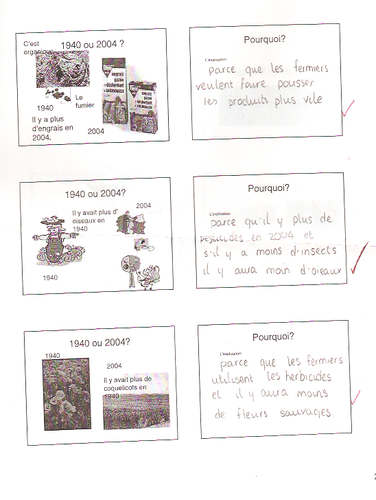 1940 ou 2004 ?
C'est
1940
Le
fumier
Il y a plus
d'engrais en
2004.
2004
Pourquoi?
L'explication:
parce que les fermiers
veulent faire pousser
les produits plus vite
1940 ou 2004?
Il y avait plus d'
oiseaux en
1940
2004
1940
Pourquoi?
L'explication:
parce qu'il y plus de
pesticides en 2004 et
s'il y a moins d'insects
il y aura moin d'oieaux
1940 ou 2004?
1940
2004
Il y avait plus de
coquelicots en
1940
Pourquoi?
L'explication:
parce que les fermiers
utilisent les herbicides
et il y aura moins
de fleurs sauvages.